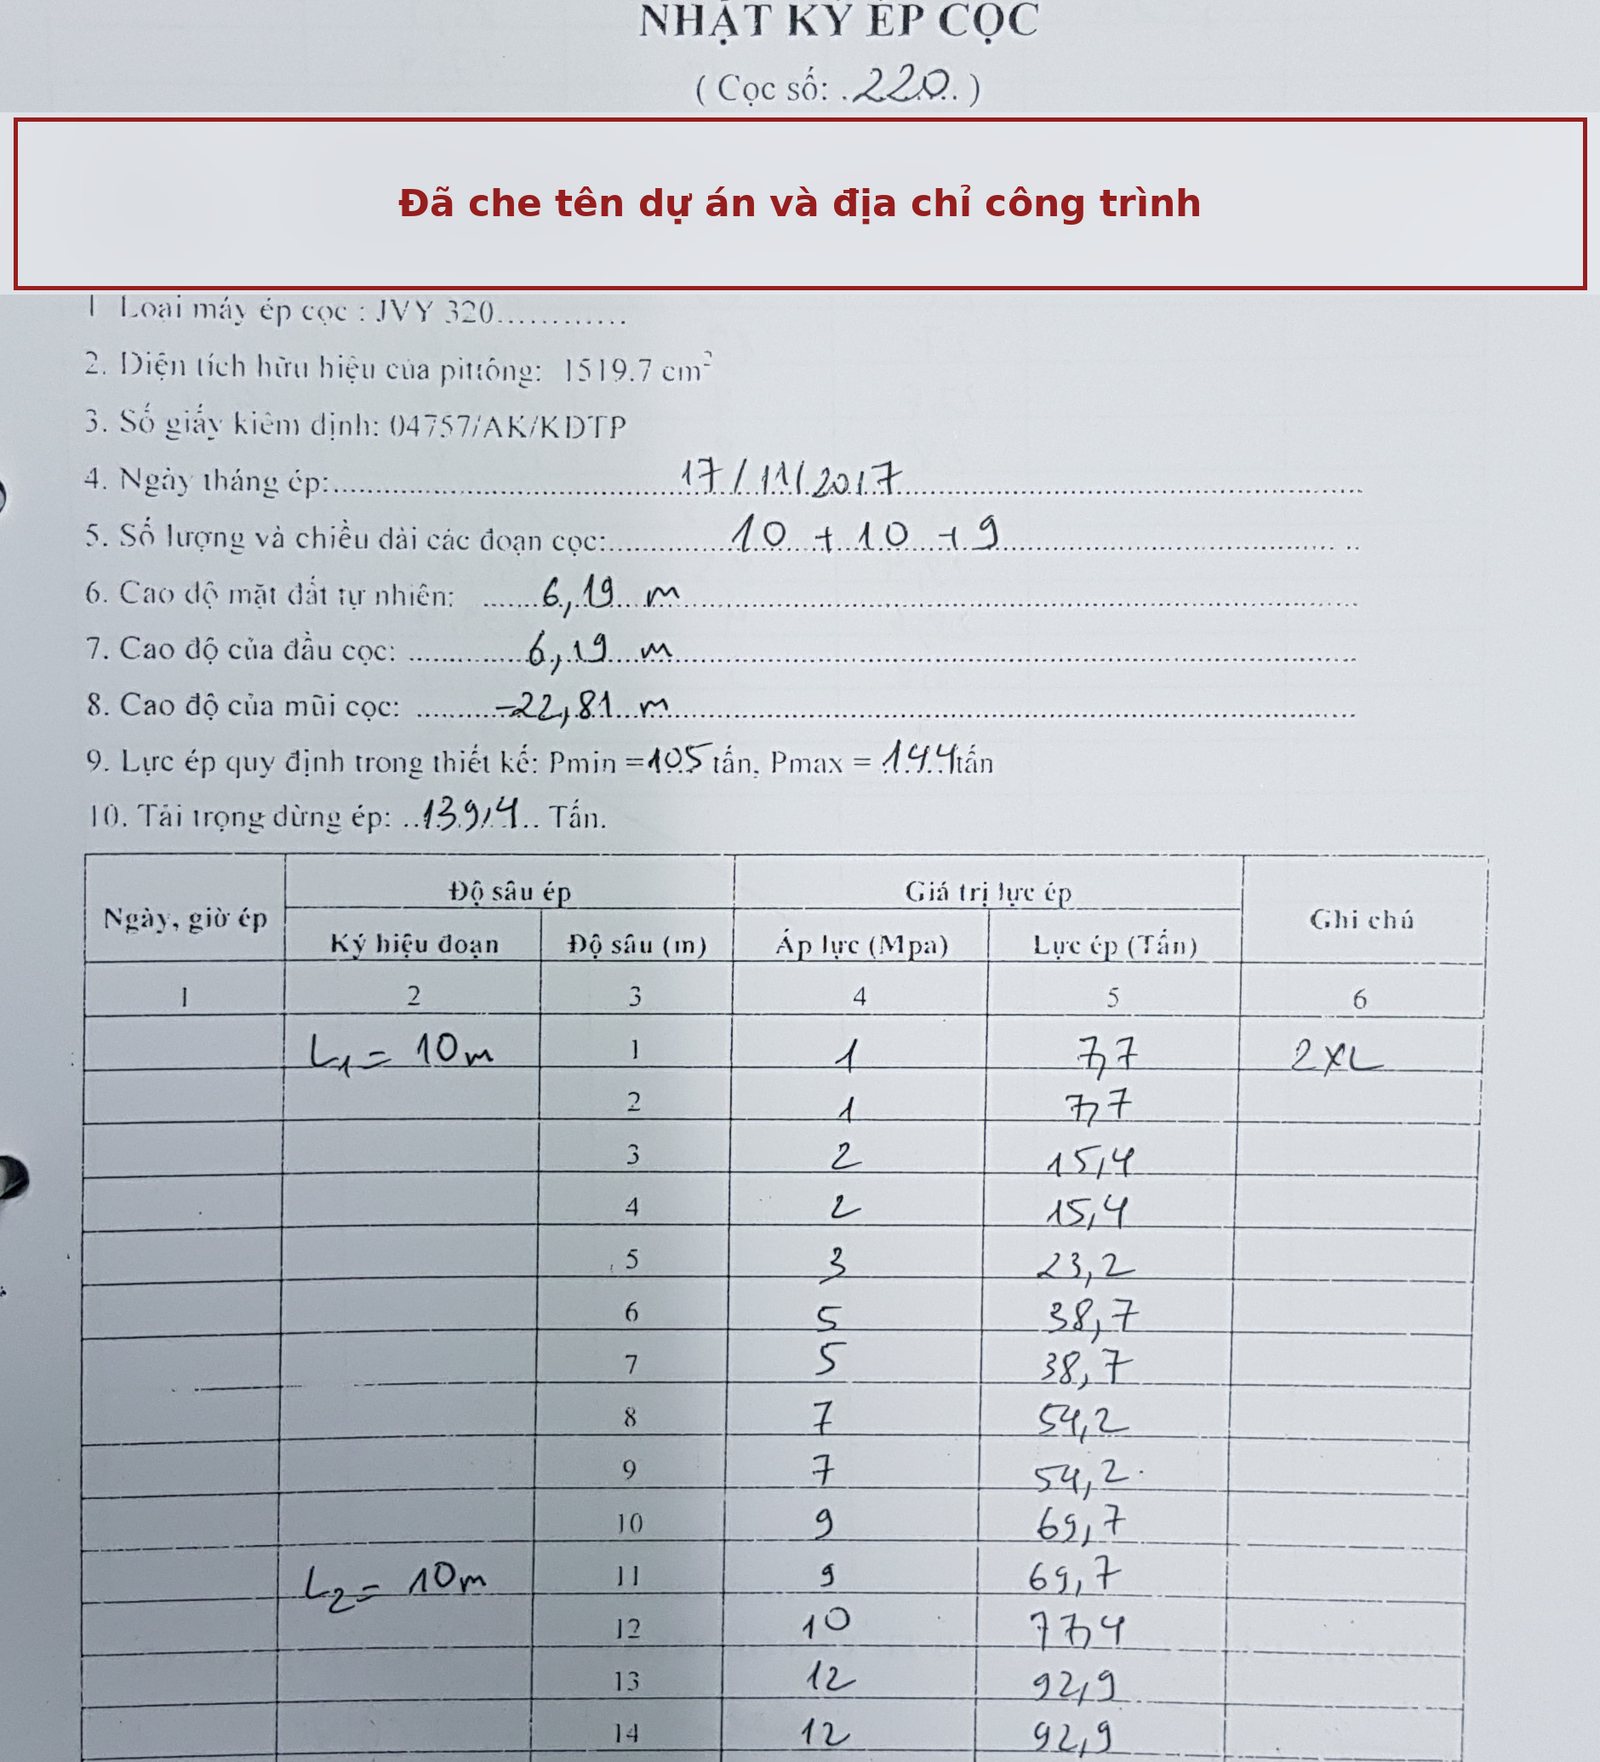 NHẬT KÝ ÉP CỌC
( Cọc số: 220 )
Đã che tên dự án và địa chỉ công trình
1 Loại máy ép cọc : JVY 320............
2. Diện tích hữu hiệu của pittông: 1519.7 cm²
3. Số giấy kiểm định: 04757/AK/KDTP
4. Ngày tháng ép: 17/11/2017
5. Số lượng và chiều dài các đoạn cọc: 10 + 10 + 9
6. Cao độ mặt đất tự nhiên: 6,19 m
7. Cao độ của đầu cọc: 6,19 m
8. Cao độ của mũi cọc: -22,81 m
9. Lực ép quy định trong thiết kế: Pmin =105 tấn, Pmax = 144 tấn
10. Tải trọng dừng ép: 139,4 Tấn.
Ngày, giờ ép Độ sâu ép Giá trị lực ép Ghi chú
Ký hiệu đoạn Độ sâu (m) Áp lực (Mpa) Lực ép (Tấn)
1 2 3 4 5 6
L1 = 10m 1 1 7,7 2XL
2 1 7,7
3 2 15,4
4 2 15,4
5 3 23,2
6 5 38,7
7 5 38,7
8 7 54,2
9 7 54,2
10 9 69,7
L2 = 10m 11 9 69,7
12 10 77,4
13 12 92,9
14 12 92,9